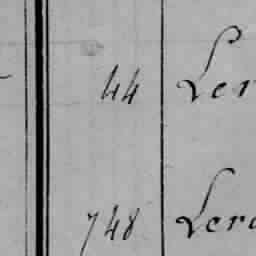 44 Ler
748 Lero